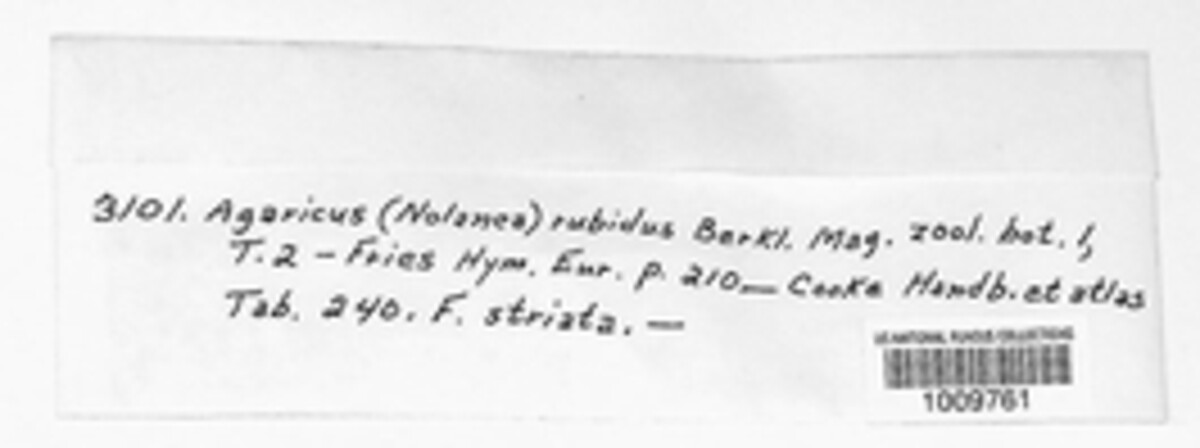 3101. Agaricus (Nolanea) rubidus Berkl. Mag. zool. bot. 1,
T. 2 - Fries Hym. Eur. p. 210 — Cooke Handb. et atlas
Tab. 240. F. striata. —
US NATIONAL FUNGUS COLLECTIONS
1009761